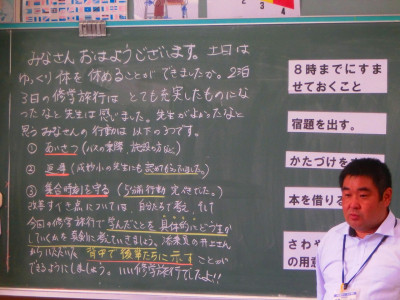 みなさん おはようございます。土日は
ゆっくり体を休めることができましたか。2泊
3日の修学旅行は とても充実したものにな
ったなと先生は思いました。先生がよかったなと
思うみなさんの行動は以下の3つです。
① あいさつ (バスの乗降、施設の方に)
② 返事
③ 集合時刻を守る (5分前行動 完ペキでした。)
改善すべき点については、自分たちで考え
今回の修学旅行で学んだことを具体的にどう生か
していくかを真剣に考えていきましょう。
背中で後輩たちに示す ことが
できるようにしましょう。いい修学旅行でしたよ!!
8時までにすま
せておくこと
宿題を出す。
かたづけを
本を借りる
さわや
の用意